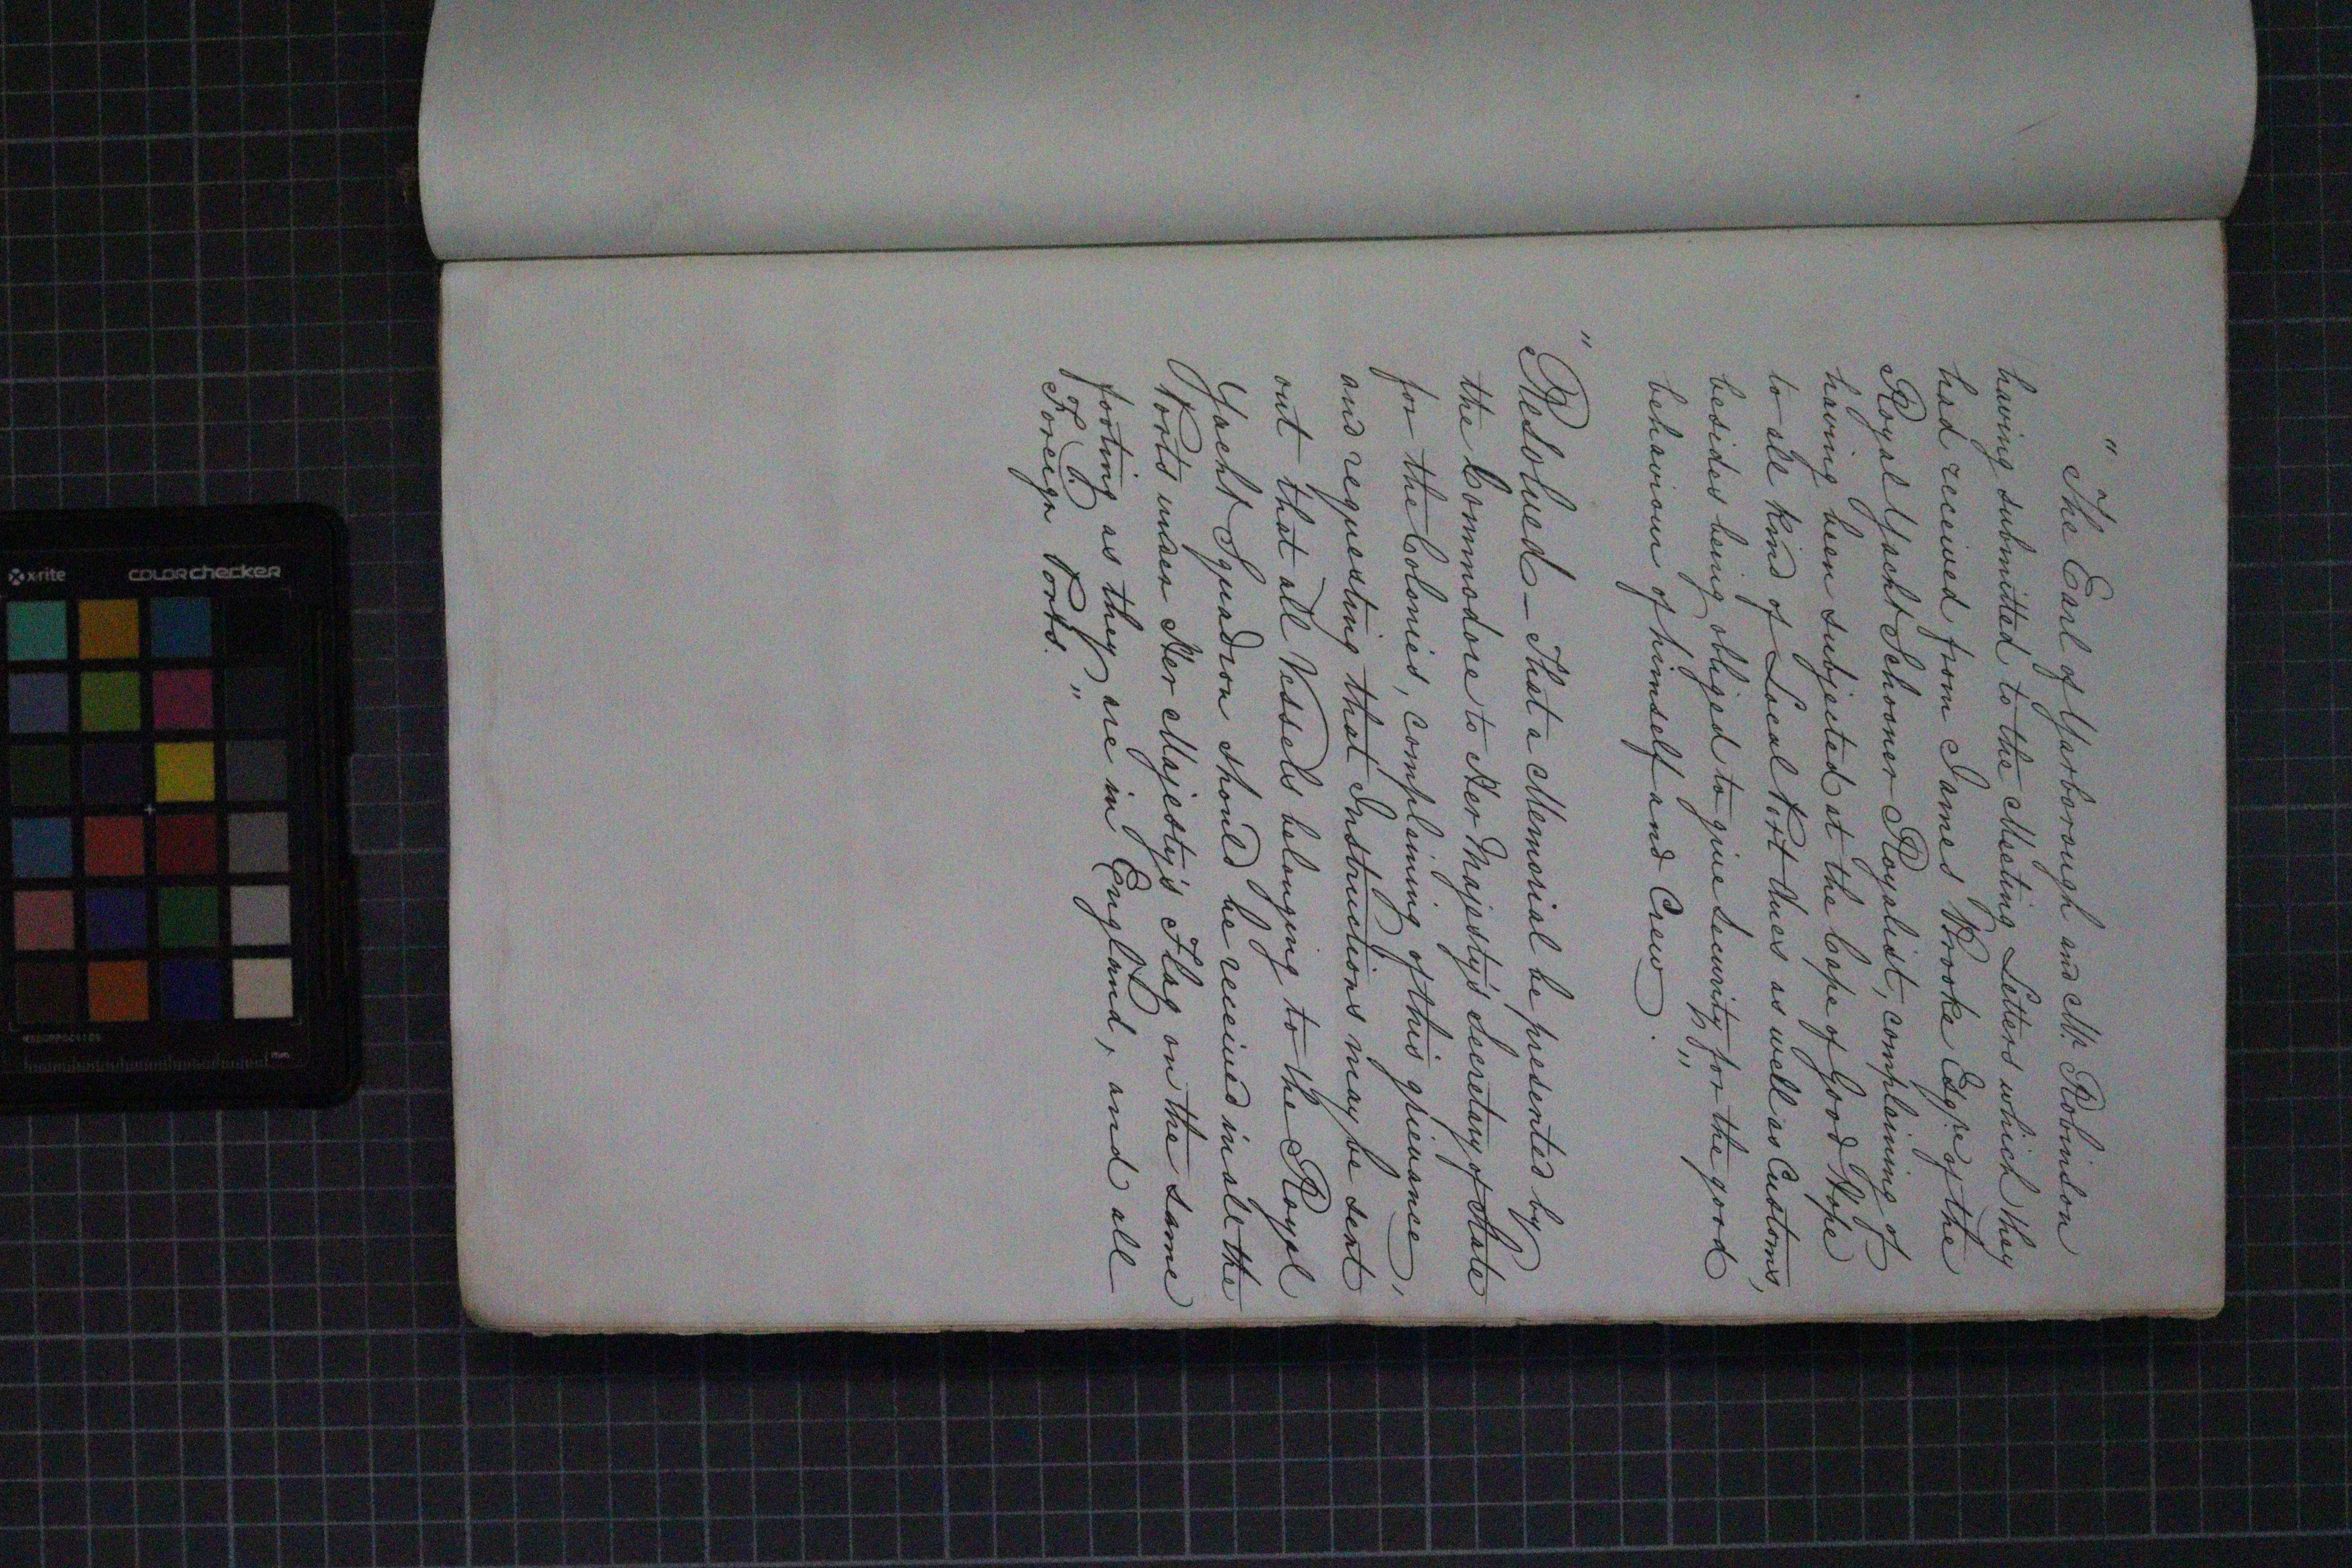 "The Earl of Yarborough and Mr. Robinson
having submitted to the Meeting Letters which they
had received from James Brooke Esqre of the
Royal Yacht Schooner Royalist, complaining of
having been subjected at the Cape of Good Hope
to all kind of Local Port dues as well as Customs,
besides being obliged to give security for the good
behaviour of himself and Crew."
"Resolved – That a Memorial be presented by
the Commodore to Her Majesty's Secretary of State
for the Colonies, complaining of this grievance,
and requesting that Instructions may be sent
out that all Vessels belonging to the Royal
Yacht Squadron should be received in all the
Ports under Her Majesty's Flag on the same
footing as they are in England, and all
Foreign Ports."
x-rite
colorchecker
mm